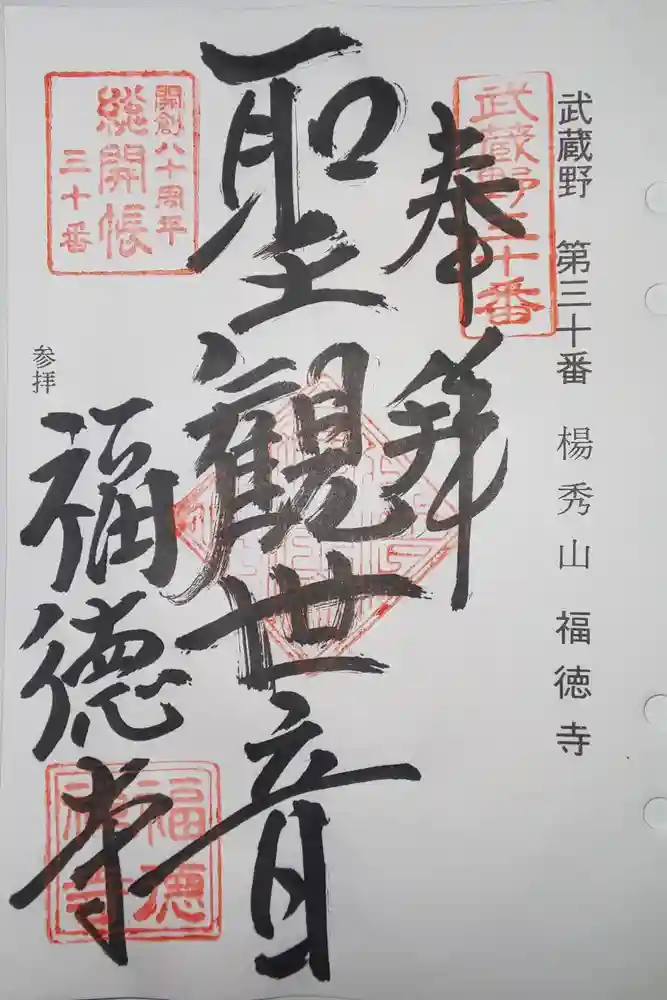 武蔵野 第三十番 楊秀山 福徳寺
武蔵野三十番
奉拝
聖觀世音
開創八十周年
総開帳
三十番
参拝
福德寺
福德
福寺